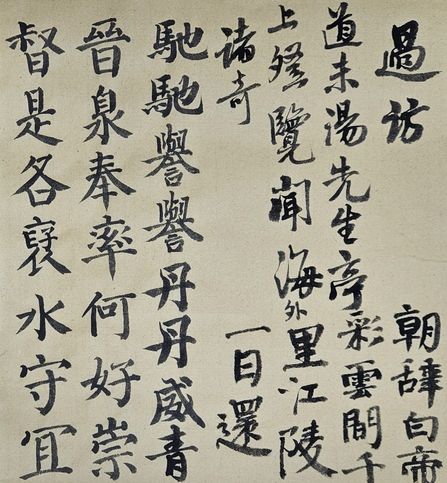 過訪
朝辭白帝
道未湯先生亭
彩雲間千
上登覽聞海外
里江陵
諸奇
一日還
馳馳譽譽丹丹威青
晉泉奉率何好崇
督是各水守冝